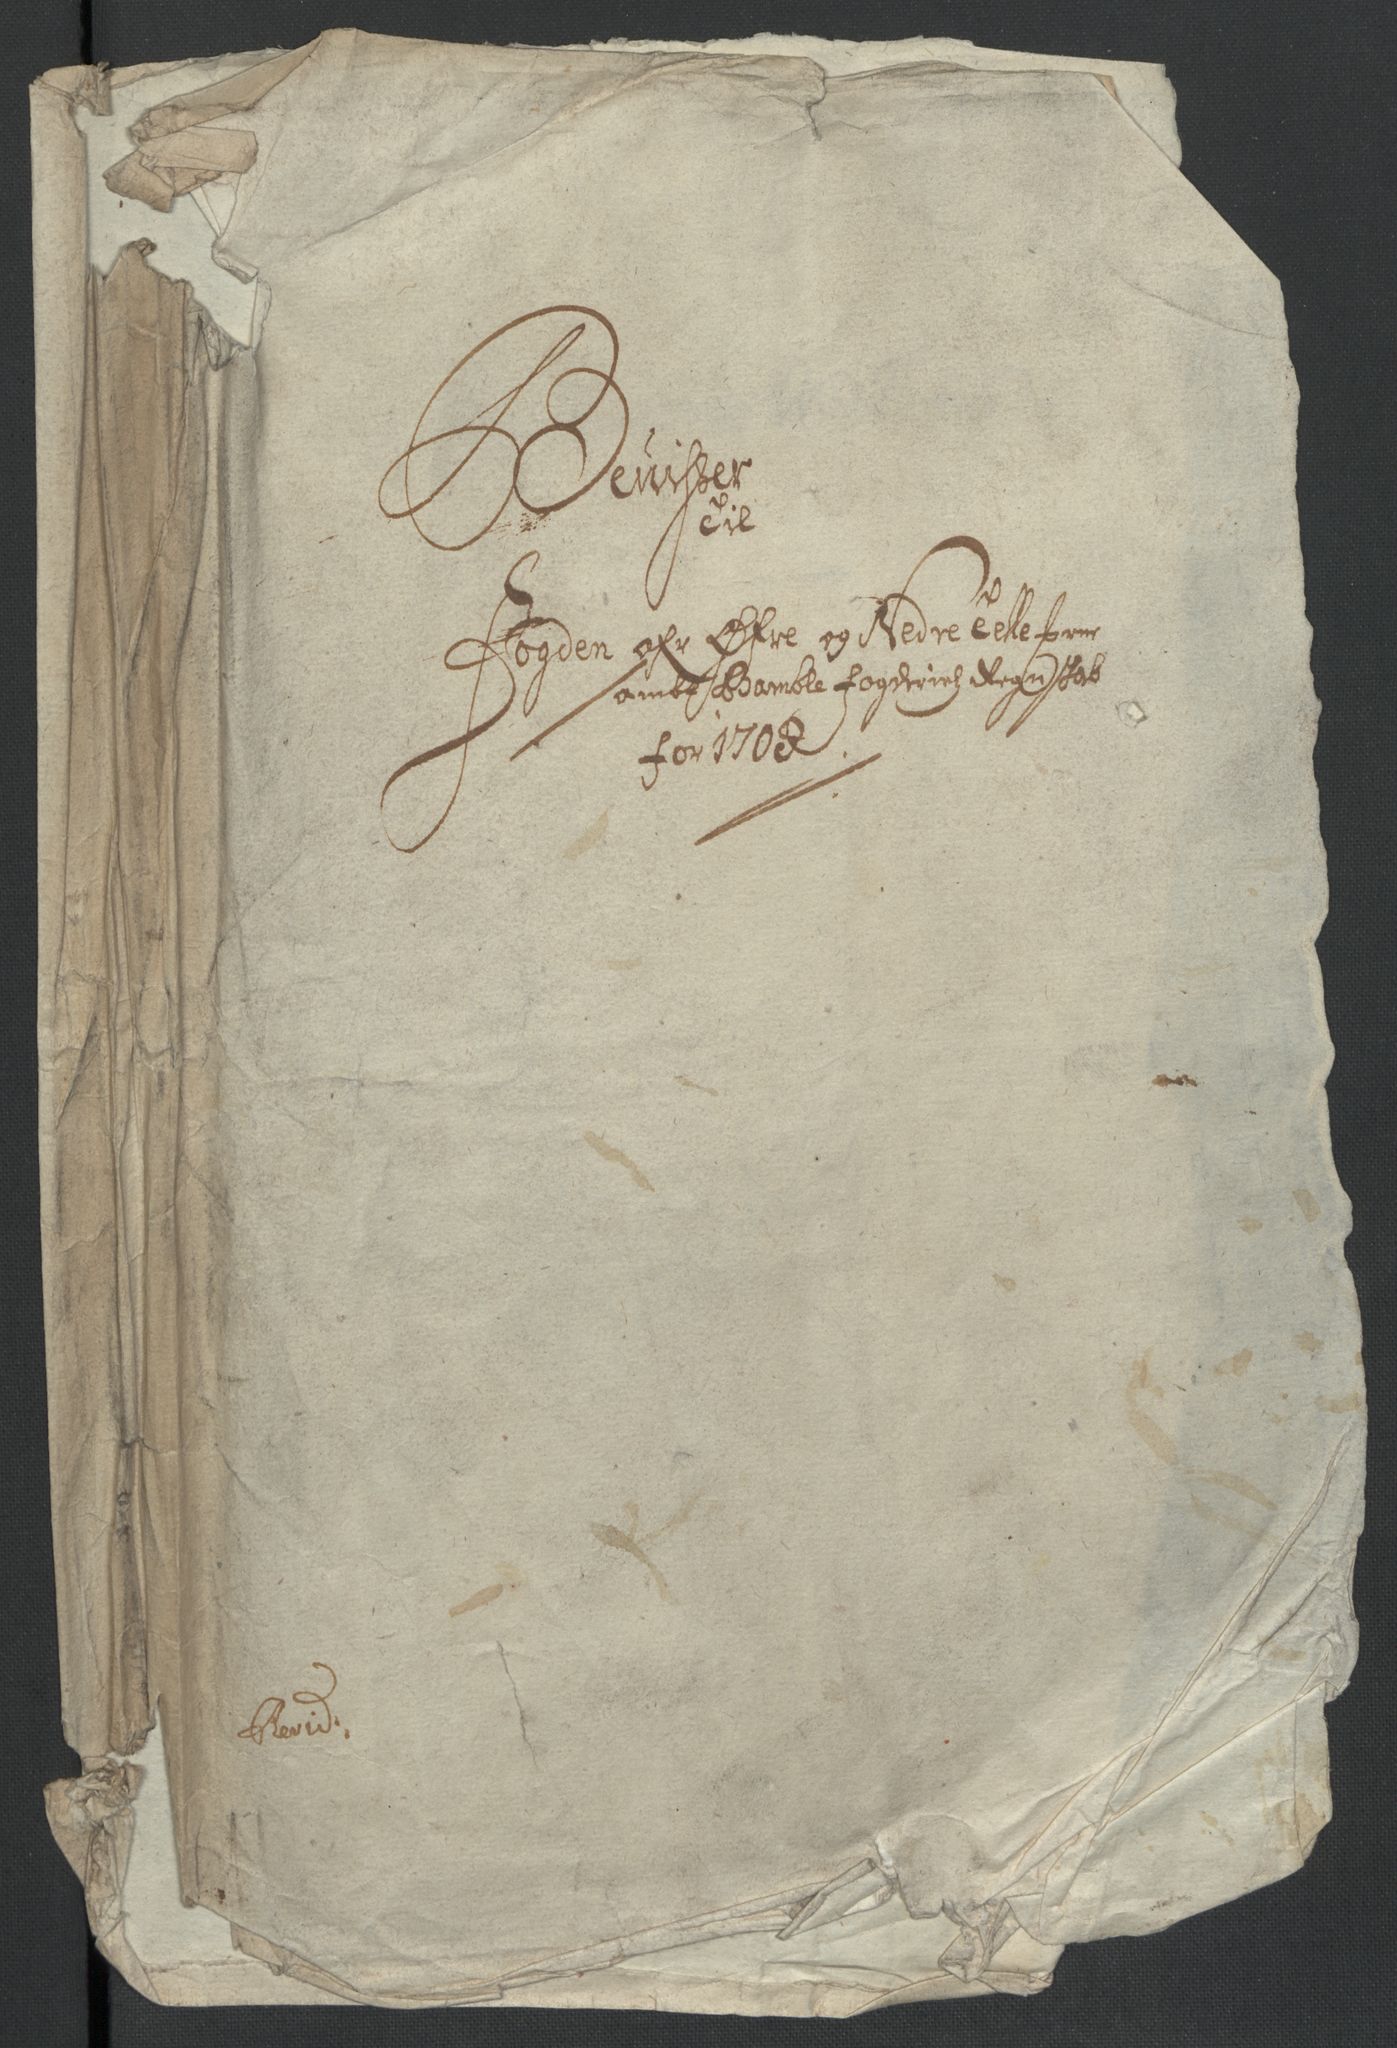 Beviisser
til
Fogden ofr Øfre og Nedre Telle
ambt Bamble fogderies Regnskab
for 1708
Revid:.